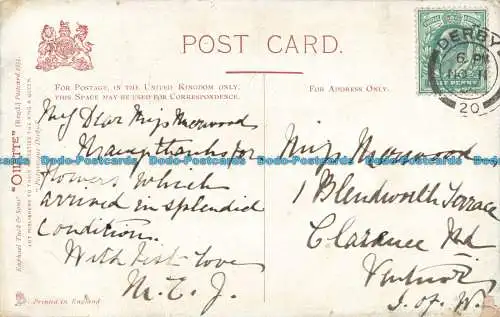 POST CARD.
FOR POSTAGE, IN THE UNITED KINGDOM ONLY,
THIS SPACE MAY BE USED FOR CORRESPONDENCE.
FOR ADDRESS ONLY.
My Dear Miss Morwood
Many thanks for
flowers which
arrived in splendid
condition.
With best love
M. E. J.
Miss Morwood,
1 Blendworth Terrace
Clarence Rd
Ventnor
I. of W.
DERBY
6 PM
20
"OILETTE" [Regd.] Postcard
Raphael Tuck & Sons'
ART PUBLISHERS TO THEIR MAJESTIES THE KING & QUEEN.
Printed in England
Dodo-Postcards Dodo-Postcards Dodo-Postcards Dodo-Postcards